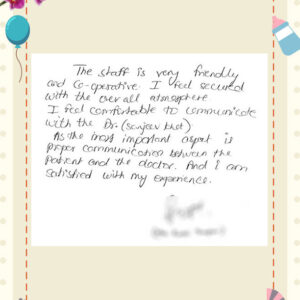 The staff is very friendly
and co-operative. I feel secured
with the over all atmosphere
I feel comfortable to communicate
with the Dr. (Sanjeev
As the most important aspect is
proper communication between the
patient and the doctor. And I am
satisfied with my experience.